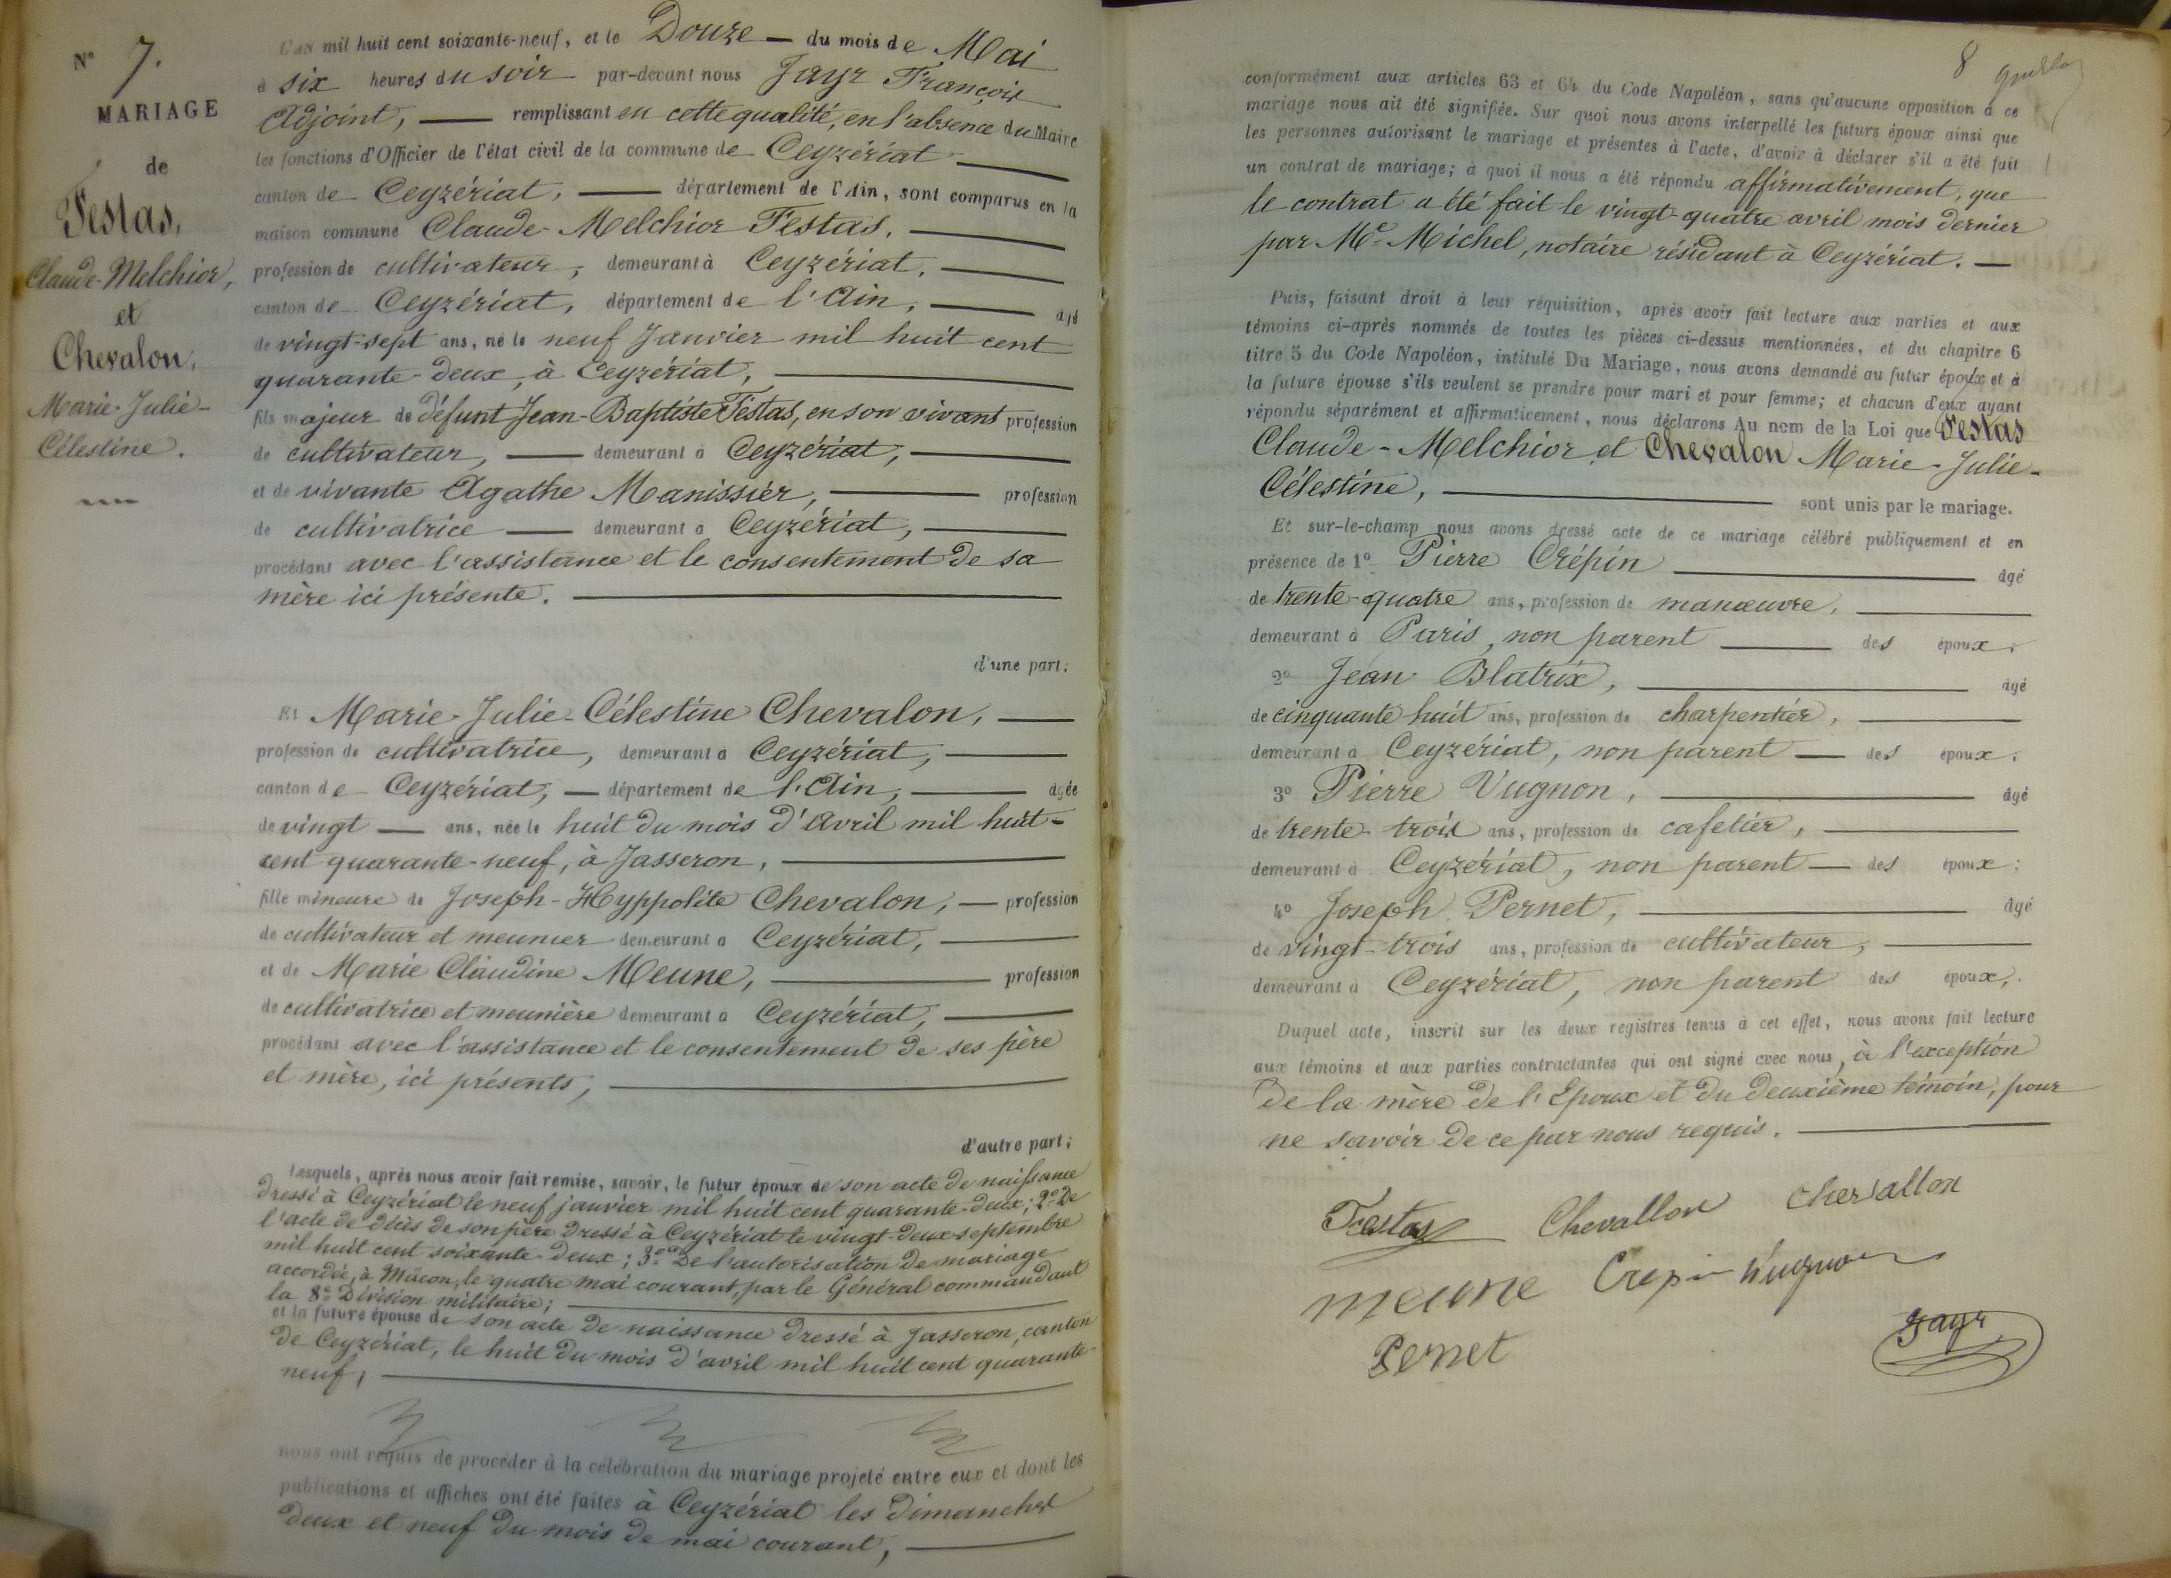 N° 7.
MARIAGE
de
Festas,
Claude-Melchior,
et
Chevalon,
Marie-Julie-
Célestine.
L'an mil huit cent soixante-neuf, et le Douze — du mois de Mai
à six heures du soir par-devant nous Jayr François
Adjoint, — remplissant en cette qualité, en l'absence du Maire
les fonctions d'Officier de l'état civil de la commune de Ceyzériat
canton de Ceyzériat, — département de l'Ain, sont comparus en la
maison commune Claude-Melchior Festas, —
profession de cultivateur, demeurant à Ceyzériat, —
canton de Ceyzériat, département de l'Ain, — âgé
de vingt-sept ans, né le neuf Janvier mil huit cent
quarante-deux, à Ceyzériat, —
fils majeur de défunt Jean-Baptiste Festas, en son vivant profession
de cultivateur, — demeurant à Ceyzériat, —
et de vivante Agathe Manissier, — profession
de cultivatrice — demeurant à Ceyzériat, —
procédant avec l'assistance et le consentement de sa
mère ici présente. —
d'une part;
Et Marie-Julie-Célestine Chevalon, —
profession de cultivatrice, demeurant à Ceyzériat, —
canton de Ceyzériat, — département de l'Ain, — âgée
de vingt — ans, née le huit du mois d'Avril mil huit-
cent quarante-neuf, à Jasseron, —
fille mineure de Joseph-Hyppolite Chevalon, — profession
de cultivateur et meunier demeurant à Ceyzériat, —
et de Marie Claudine Meune, — profession
de cultivatrice et meunière demeurant à Ceyzériat, —
procédant avec l'assistance et le consentement de ses père
et mère, ici présents, —
d'autre part;
Lesquels, après nous avoir fait remise, savoir, le futur époux de son acte de naissance
dressé à Ceyzériat le neuf janvier mil huit cent quarante-deux; 2° De
l'acte de décès de son père dressé à Ceyzériat le vingt-deux septembre
mil huit cent soixante-deux; 3° De l'autorisation de mariage
accordée, à Mâcon, le quatre mai courant, par le Général commandant
la 8e Division militaire; —
et la future épouse de son acte de naissance dressé à Jasseron, canton
de Ceyzériat, le huit du mois d'avril mil huit cent quarante-
neuf, —
nous ont requis de procéder à la célébration du mariage projeté entre eux et dont les
publications et affiches ont été faites à Ceyzériat les dimanches
deux et neuf du mois de mai courant, —
8
conformément aux articles 63 et 64 du Code Napoléon, sans qu'aucune opposition à ce
mariage nous ait été signifiée. Sur quoi nous avons interpellé les futurs époux ainsi que
les personnes autorisant le mariage et présentes à l'acte, d'avoir à déclarer s'il a été fait
un contrat de mariage; à quoi il nous a été répondu affirmativement, que
le contrat a été fait le vingt-quatre avril mois dernier
par Me Michel, notaire résidant à Ceyzériat. —
Puis, faisant droit à leur réquisition, après avoir fait lecture aux parties et aux
témoins ci-après nommés de toutes les pièces ci-dessus mentionnées, et du chapitre 6
titre 5 du Code Napoléon, intitulé Du Mariage, nous avons demandé au futur époux et à
la future épouse s'ils veulent se prendre pour mari et pour femme; et chacun d'eux ayant
répondu séparément et affirmativement, nous déclarons Au nom de la Loi que Festas
Claude-Melchior et Chevalon Marie-Julie-
Célestine, — sont unis par le mariage.
Et sur-le-champ nous avons dressé acte de ce mariage célébré publiquement et en
présence de 1° Pierre Crépin — âgé
de trente-quatre ans, profession de manœuvre, —
demeurant à Paris, non parent — des époux;
2° Jean Blatrix, — âgé
de cinquante huit ans, profession de charpentier, —
demeurant à Ceyzériat, non parent — des époux;
3° Pierre Vugnon, — âgé
de trente-trois ans, profession de cafetier, —
demeurant à Ceyzériat, non parent — des époux;
4° Joseph Pernet, — âgé
de vingt-trois ans, profession de cultivateur, —
demeurant à Ceyzériat, non parent des époux,
Duquel acte, inscrit sur les deux registres tenus à cet effet, nous avons fait lecture
aux témoins et aux parties contractantes qui ont signé avec nous, à l'exception
De la mère de l'Epoux et du deuxième témoin, pour
ne savoir de ce par nous requis. —
Festas Chevallon Chevallon
meune Crepin Vugnon
Pernet Jayr